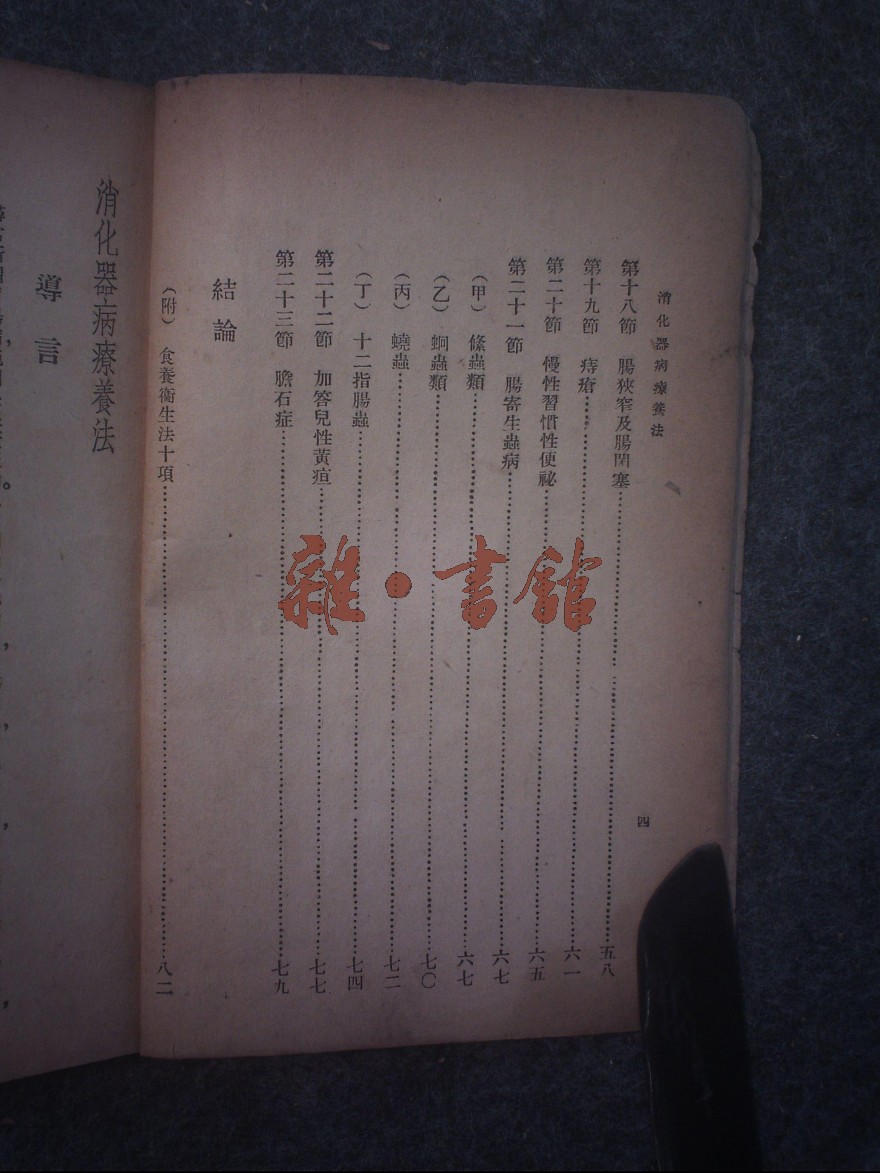 消化器病療養法
四
第十八節　腸狹窄及腸閉塞……五八
第十九節　痔瘡……六一
第二十節　慢性習慣性便祕……六五
第二十一節　腸寄生蟲病……六七
（甲）　絛蟲類……六七
（乙）　蛔蟲類……七〇
（丙）　蟯蟲……七二
（丁）　十二指腸蟲……七四
第二十二節　加答兒性黃疸……七七
第二十三節　膽石症……七九
結論
（附）　食養衞生法十項……八二
消化器病療養法
導言
雜·書館